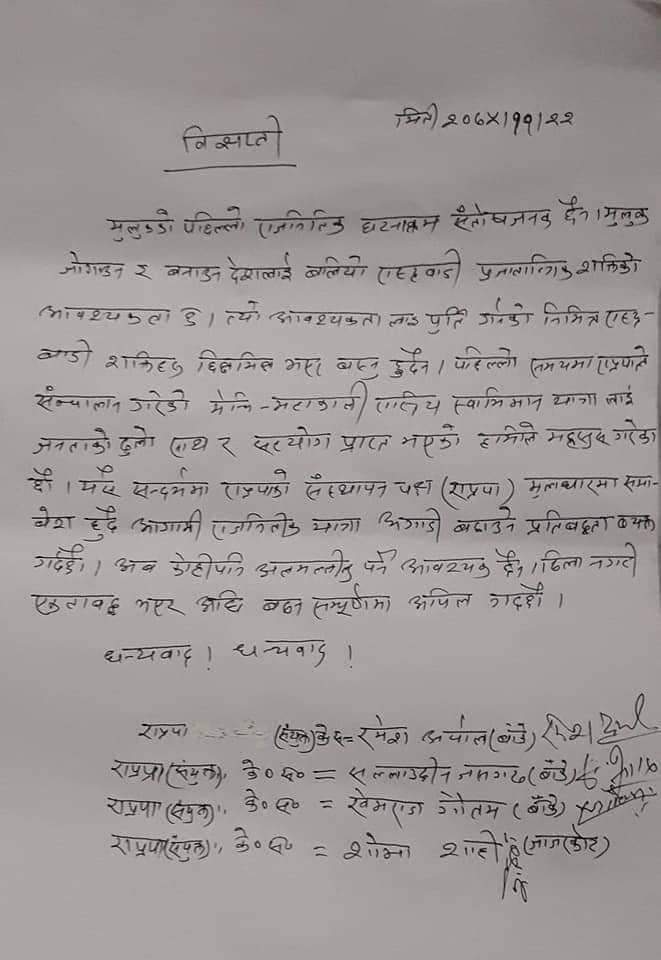 मिती २०७५।११।२२
विज्ञप्ती
मुलुकको पछिल्लो राजनितिक घटनाक्रम संतोषजनक छैन। मुलुक
जोगाउन र बनाउन देशलाई बलियो राष्ट्रवादी प्रजातान्त्रिक शक्तिको
आवश्यकता छ। त्यो आवश्यकता लाइ पुर्ति गर्नको निमित्त राष्ट्र-
बादी शक्तिहरु छिन्नभिन्न भएर बस्नु हुदैन। पछिल्लो समयमा राप्रपाले
संन्चालन गरेको मेचि-महाकाली रास्ट्रिय स्वाभिमान यात्रा लाई
जनताको ठुलो साथ र सहयोग प्राप्त भएको हामीले महसुस गरेका
छौ। यसै सन्दर्भमा राप्रपाको संस्थापन पक्ष (राप्रपा) मुलधारमा समा-
वेश हुदै आगामी राजनितीक यात्रा अगाडी बढाउने प्रतिबद्धता व्यक्त
गर्दछौ। अब कोहीपनि अलमल्लीनु पर्ने आवश्यक छैन। ढिला नगरी
एकताबद्ध भएर अघि बढ्न सम्पूर्णमा अपिल गर्दछौ।
धन्यवाद! धन्यवाद!
राप्रपा (संयुक्त) के.स = रमेश अर्याल (बाँके)
राप्रपा (संयुक्त), के० स० = (बाँके)
राप्रपा (संयुक्त), के० स० = खेमराज गौतम (बाँके)
राप्रपा (संयुक्त), के० स० = शोभा शाही (जाजरकोट)